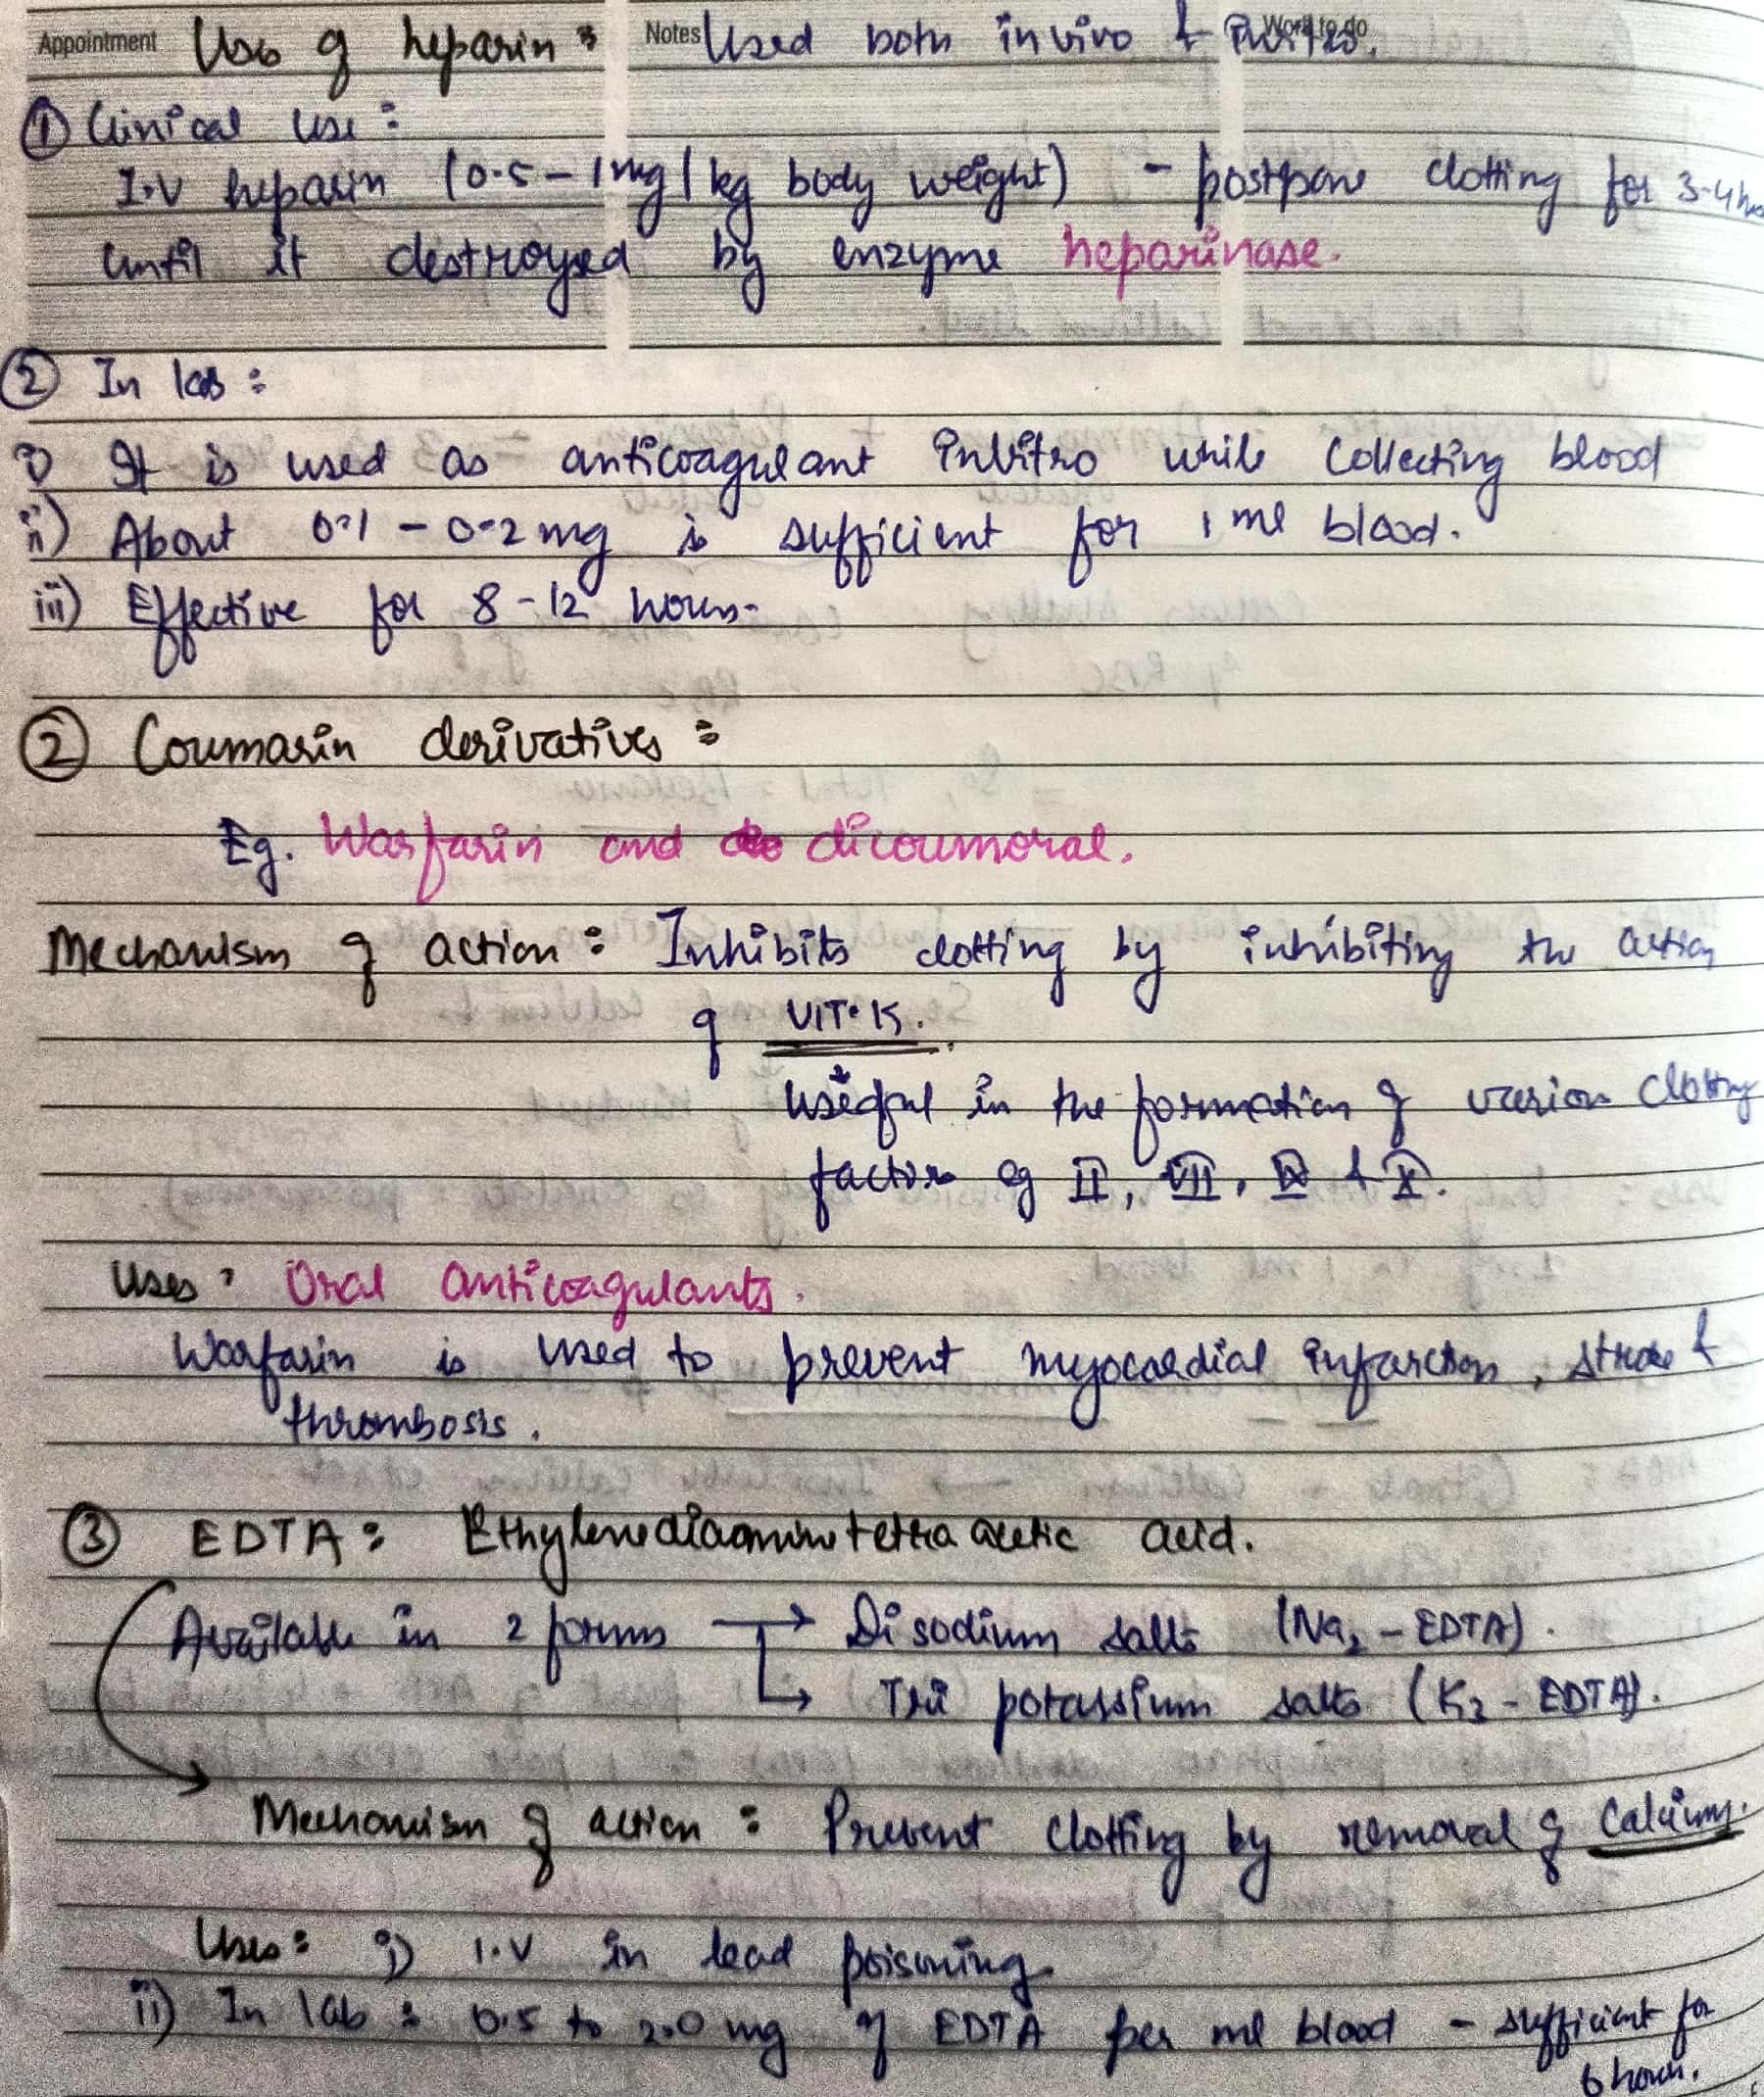 Appointment Notes Work to do
Uses of heparin : Used both in vivo & invitro.
① Clinical use :
I.V heparin (0.5 - 1mg / kg body weight) - postpone clotting for 3-4 hrs
until it destroyed by enzyme heparinase.
② In lab :
i) It is used as anticoagulant invitro while collecting blood
ii) About 0.1 - 0.2 mg is sufficient for 1 ml blood.
iii) Effective for 8 - 12 hours.
② Coumarin derivatives :
Eg. Warfarin and dicoumoral.
Mechanism of action : Inhibits clotting by inhibiting the action
of VIT. K.
useful in the formation of various clotting
factors eg II, VII, IX & X.
Uses : Oral anticoagulants.
Warfarin is used to prevent myocardial infarction, stroke &
thrombosis.
③ EDTA : Ethylenediaminetetra acetic acid.
Available in 2 forms → Disodium salts (Na₂ - EDTA).
↳ Tri potassium salts (K₃ - EDTA).
Mechanism of action : Prevent clotting by removal of Calcium.
Uses : i) I.V in lead poisoning.
ii) In lab : 0.5 to 2.0 mg of EDTA per ml blood - sufficient for
6 hours.